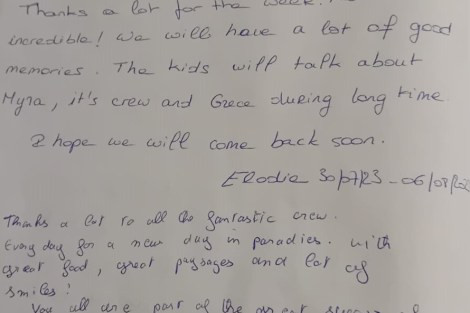 Thanks a lot for the week!
incredible! We will have a lot of good
memories. The kids will talk about
Myra, it's crew and Grece during long time
I hope we will come back soon.
Elodie 30/07/23 - 06/08/
Thanks a lot to all the fantastic crew.
Every day for a new day in paradies. with
great food, great paysages and lot of
smiles!
You all are part of the great